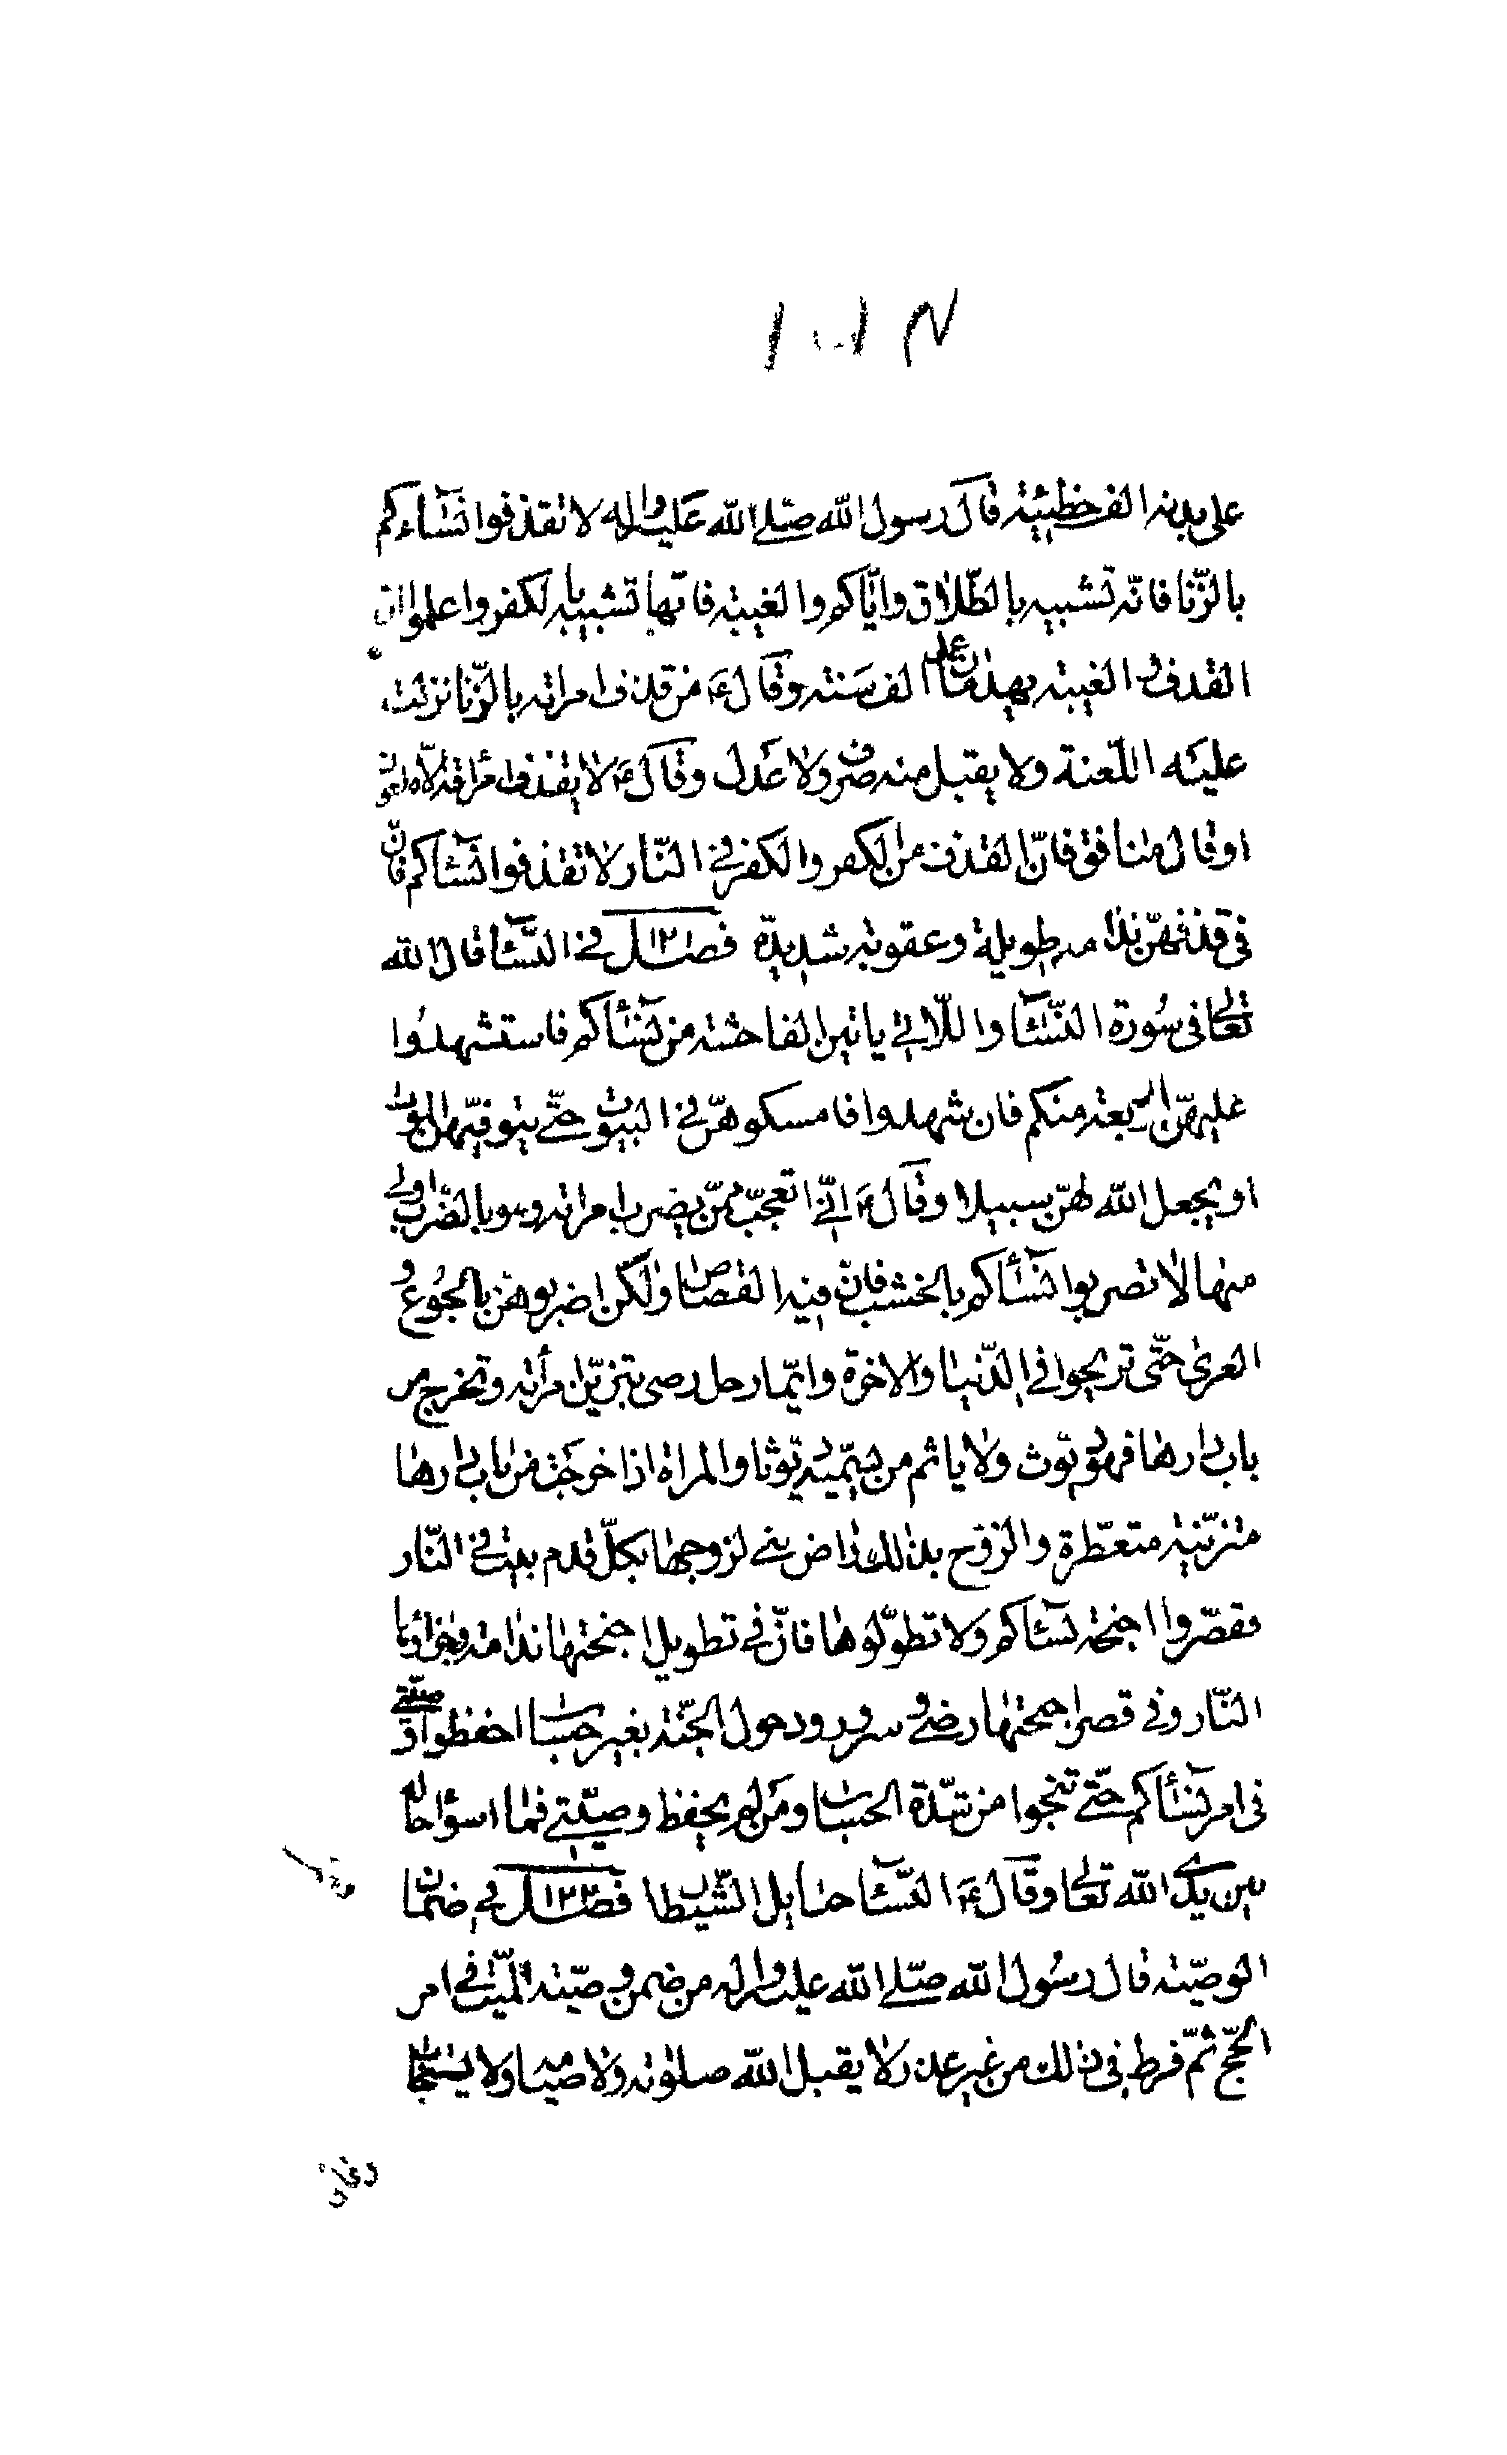 على بدنه الف خطيئة قال رسول الله صلى الله عليه واله لا تقذفوا نساءكم
بالزنا فانه تشبيه بالطلاق واياكم والغيبة فانها تشبيه بالكفر واعلموا ان
القذف والغيبة يهدمان عمل الف سنة وقال ع من قذف امراته بالزنا نزلت
عليه اللعنة ولا يقبل منه صرف ولا عدل وقال ع لا يقذف امراته الا ملعون
او قال منافق فان القذف من الكفر والكفر في النار لا تقذفوا نسائكم فان
في قذفهن ندامة طويلة وعقوبة شديدة فصل ١٢١ في النساء قال الله
تعالى في سورة النساء واللاتي ياتين الفاحشة من نسائكم فاستشهدوا
عليهن اربعة منكم فان شهدوا فامسكوهن في البيوت حتى يتوفيهن الموت
او يجعل الله لهن سبيلا وقال ع اني اتعجب ممن يضرب امراته وهو بالضرب اولى
منها لا تضربوا نسائكم بالخشب فان فيه القصاص ولكن اضربوهن بالجوع و
العرى حتى تريحوا في الدنيا والاخرة وايما رجل رضى بتزين امرأته وتخرج من
باب دارها فهو ديوث ولا ياثم من يسميه ديوثا والمراة اذا خرجت من باب دارها
متزينة متعطرة والزوج بذلك راض بنى لزوجها بكل قدم بيت في النار
فقصروا اجنحة نسائكم ولا تطولوها فان في تطويل اجنحتها ندامة وجزاؤها
النار وفي قصر اجنحتها رضى وسرور ودخول الجنة بغير حساب احفظوا وصيتي
في امر نسائكم حتى تنجوا من شدة الحساب ومن لم يحفظ وصيتي فما اسوأ حاله
بين يدي الله تعالى وقال ع النساء حبايل الشيطان فصل ١٢٢ في ضمان
الوصية قال رسول الله صلى الله عليه واله من ضمن وصية الميت في امر
الحج ثم فرط في ذلك من غير عذر لا يقبل الله صلوته ولا صيامه ولا يستجاب